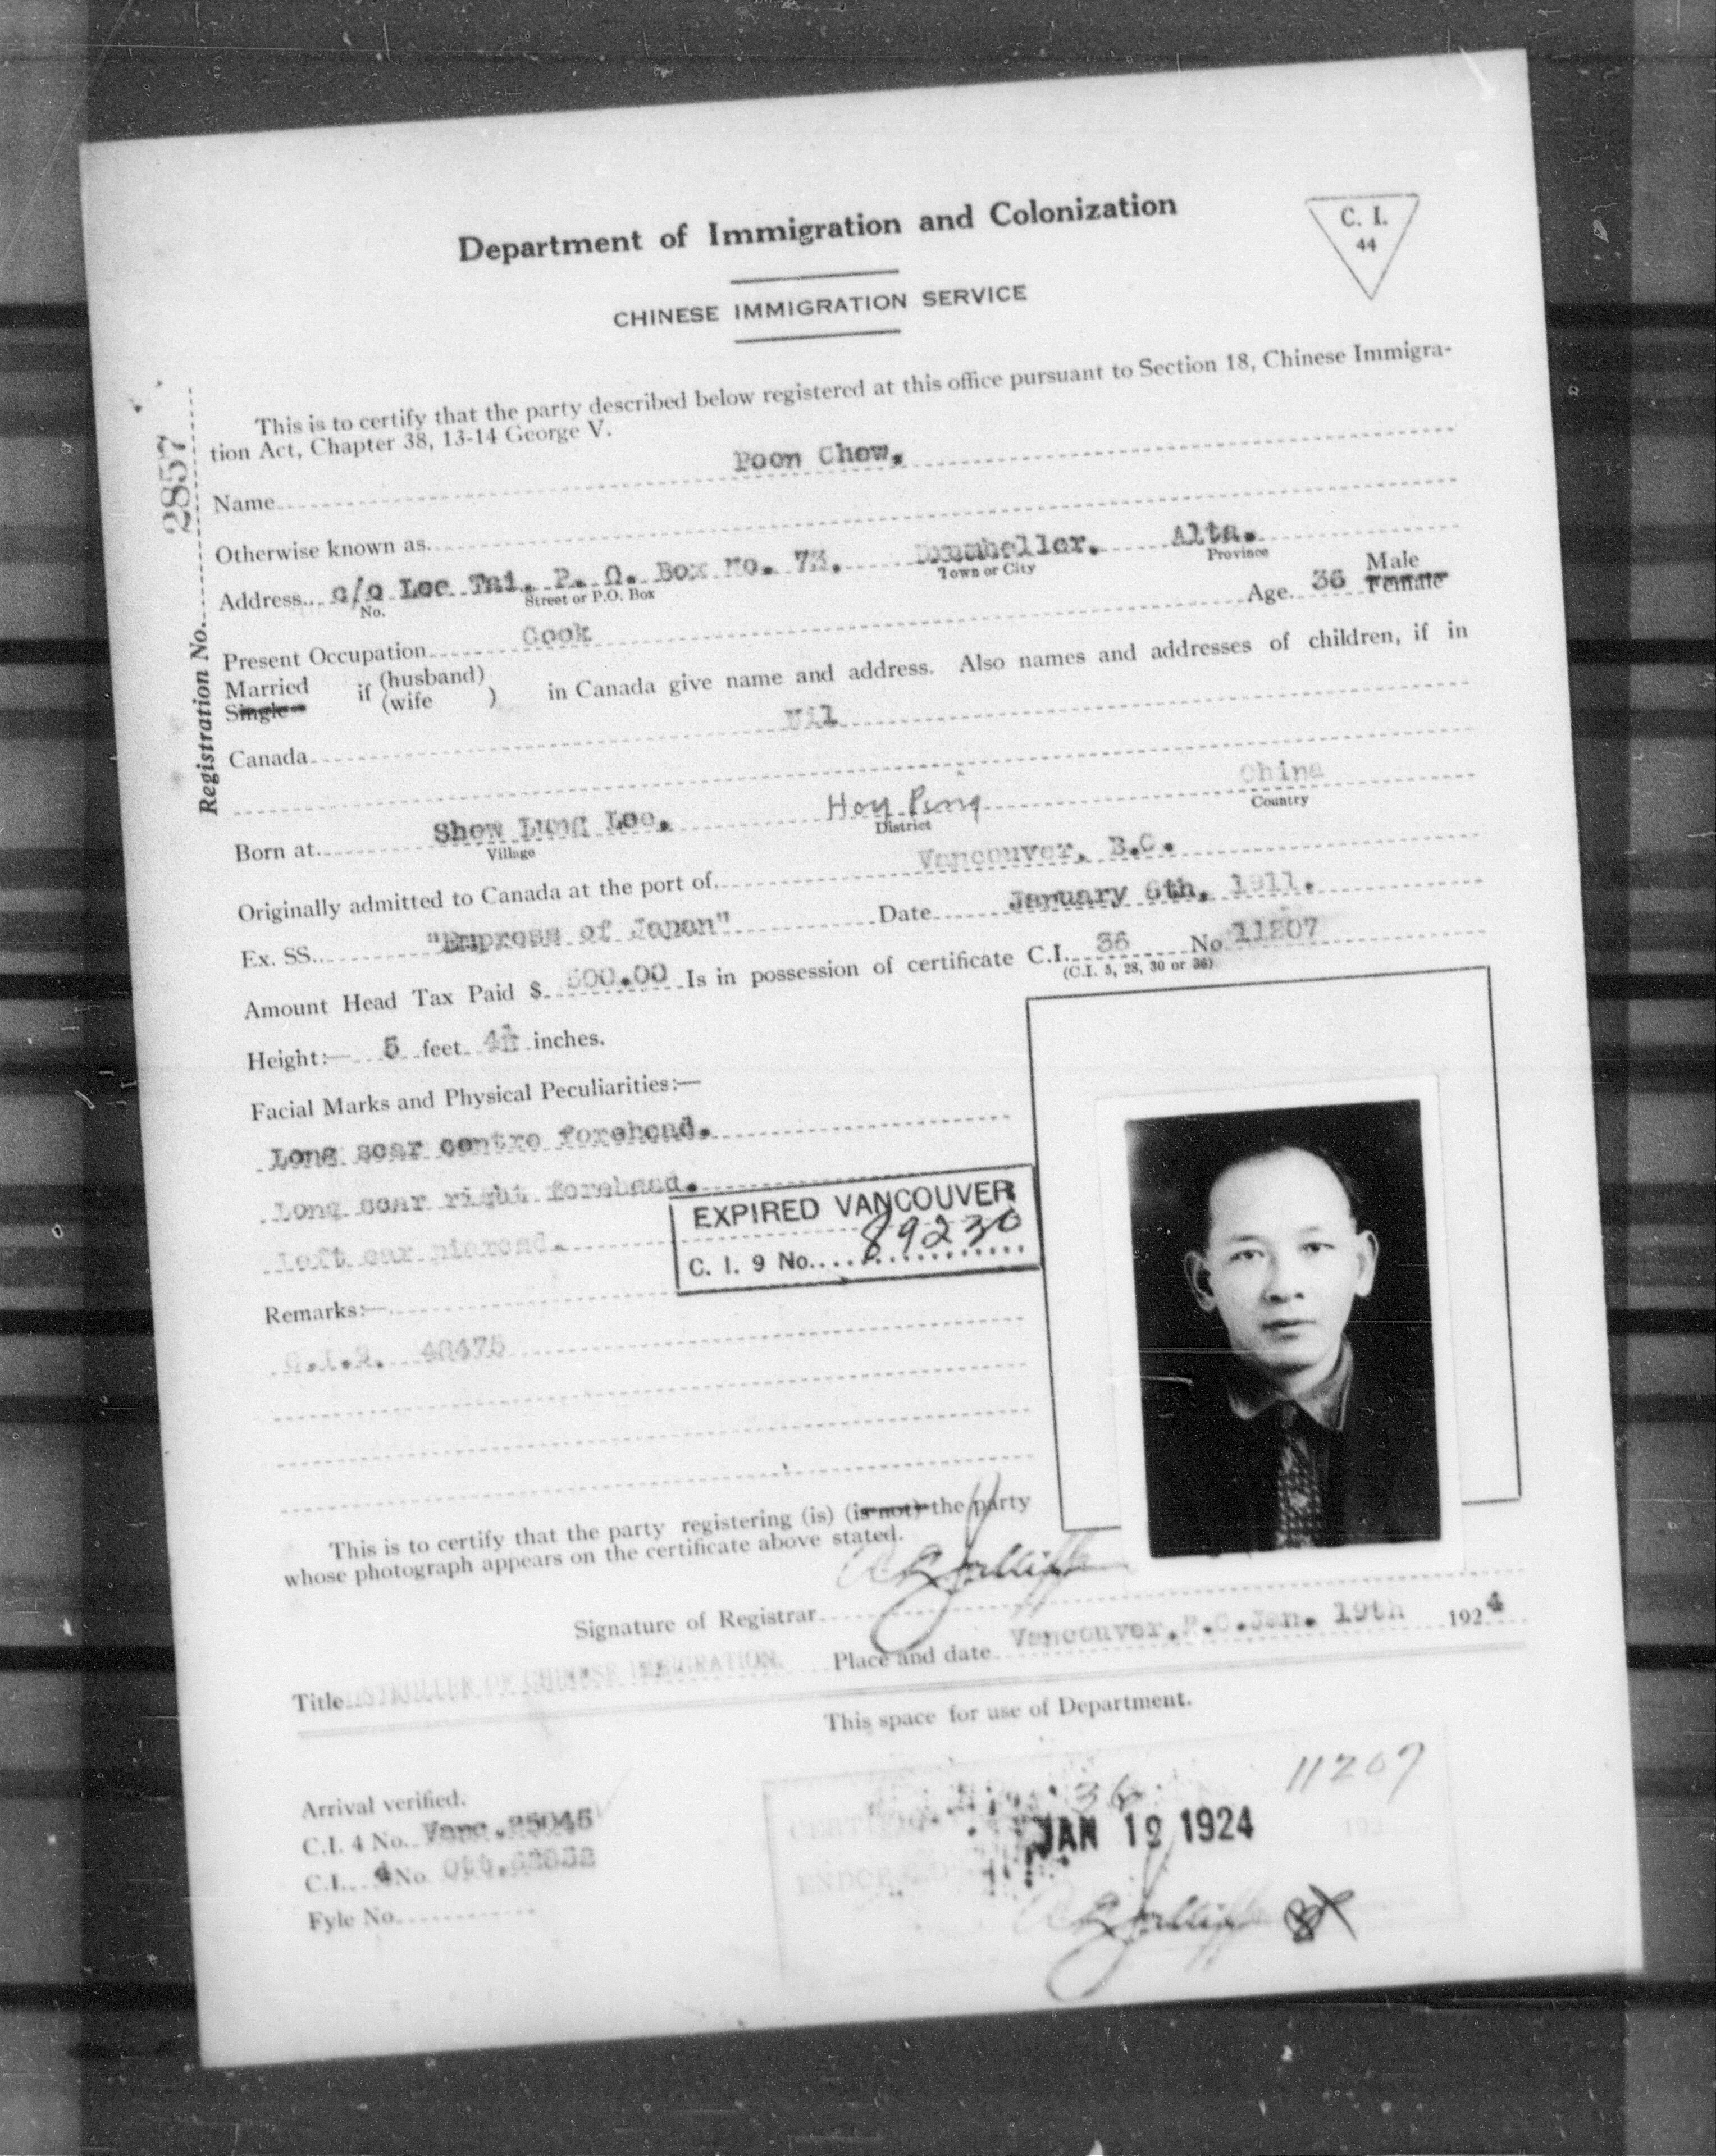 Department of Immigration and Colonization
C. I.
44
CHINESE IMMIGRATION SERVICE
This is to certify that the party described below registered at this office pursuant to Section 18, Chinese Immigra-
tion Act, Chapter 38, 13-14 George V.
Registration No. 2857
Name Poon Chow.
Otherwise known as
Address c/o Lee Tai, P. O. Box No. Drumheller. Alta.
No. Street or P.O. Box Town or City Province
Age 36 Male Female
Present Occupation Cook
Married Single if (husband) (wife ) in Canada give name and address. Also names and addresses of children, if in
Canada Nil
Born at Show Lung Lee. Hoy Ping China
Village District Country
Originally admitted to Canada at the port of Vancouver, B.C.
Ex. SS. "Empress of Japan" Date January 6th, 1911.
Amount Head Tax Paid $ 500.00 Is in possession of certificate C.I. 36 No 11207
(C.I. 5, 28, 30 or 36)
Height:— 5 feet 4½ inches.
Facial Marks and Physical Peculiarities:—
Long scar centre forehead.
Long scar right forehead.
Left ear pierced.
EXPIRED VANCOUVER
C. I. 9 No. 89230
Remarks:—
C.I.9. 48475
This is to certify that the party registering (is) (is not) the party
whose photograph appears on the certificate above stated.
Signature of Registrar
Place and date Vancouver, B.C. Jan. 19th 1924
Title CONTROLLER OF CHINESE IMMIGRATION.
This space for use of Department.
Arrival verified.
C.I. 4 No. Vanc. 25045
C.I. 4 No Ott.
Fyle No.
36 No. 11207
JAN 19 1924